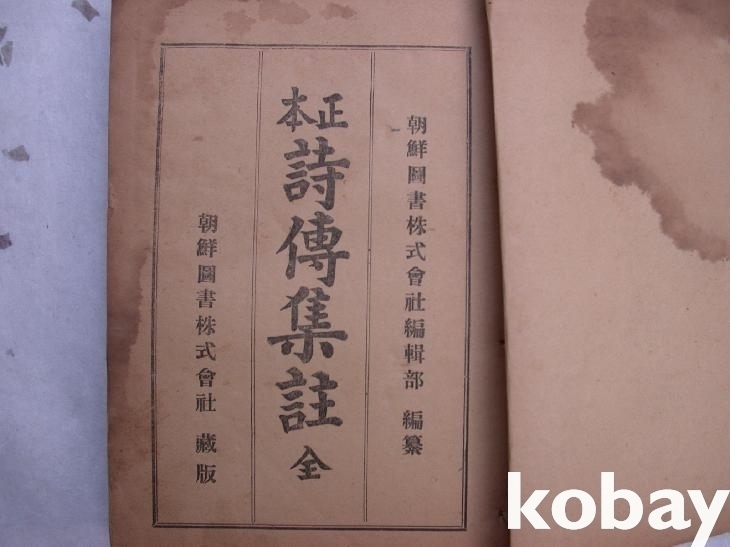 朝鮮圖書株式會社編輯部 編纂
正本
詩傳集註 全
朝鮮圖書株式會社 藏版
kobay